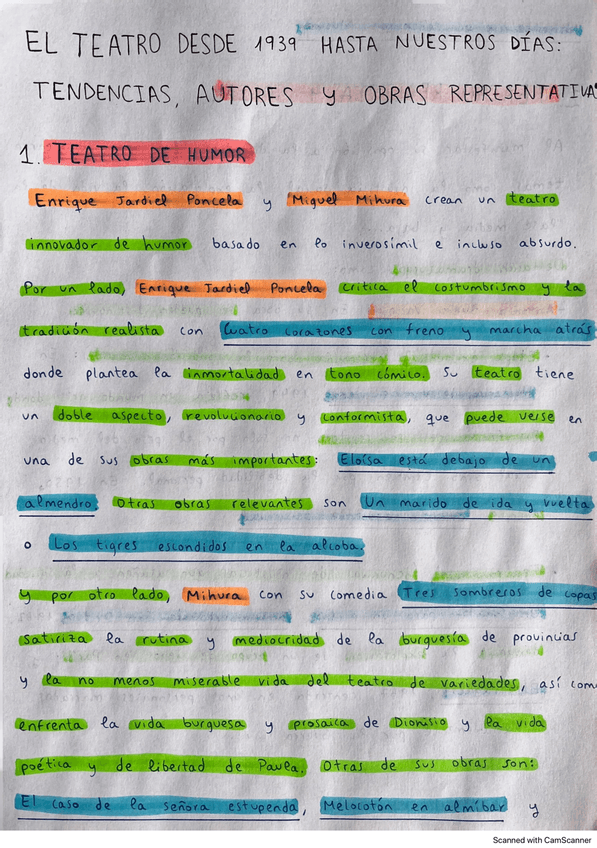 EL TEATRO DESDE 1939 HASTA NUESTROS DÍAS:
TENDENCIAS, AUTORES y OBRAS REPRESENTATIVA
1. TEATRO DE HUMOR
Enrique Jardiel Poncela y Miguel Mihura crean un teatro
innovador de humor basado en lo inverosímil e incluso absurdo.
Por un lado, Enrique Jardiel Poncela critica el costumbrismo y la
tradición realista con Cuatro corazones con freno y marcha atrás
donde plantea la inmortalidad en tono cómico. Su teatro tiene
un doble aspecto, revolucionario y conformista, que puede verse en
una de sus obras más importantes: Eloísa está debajo de un
almendro. Otras obras relevantes son Un marido de ida y vuelta
o Los tigres escondidos en la alcoba.
Y por otro lado, Mihura con su comedia Tres sombreros de copas
satiriza la rutina y mediocridad de la burguesía de provincias
y la no menos miserable vida del teatro de variedades, así com
enfrenta la vida burguesa y prosaica de Dionisio y la vida
poética y de libertad de Paula. Otras de sus obras son:
El caso de la señora estupenda, Melocotón en almíbar y
Scanned with CamScanner